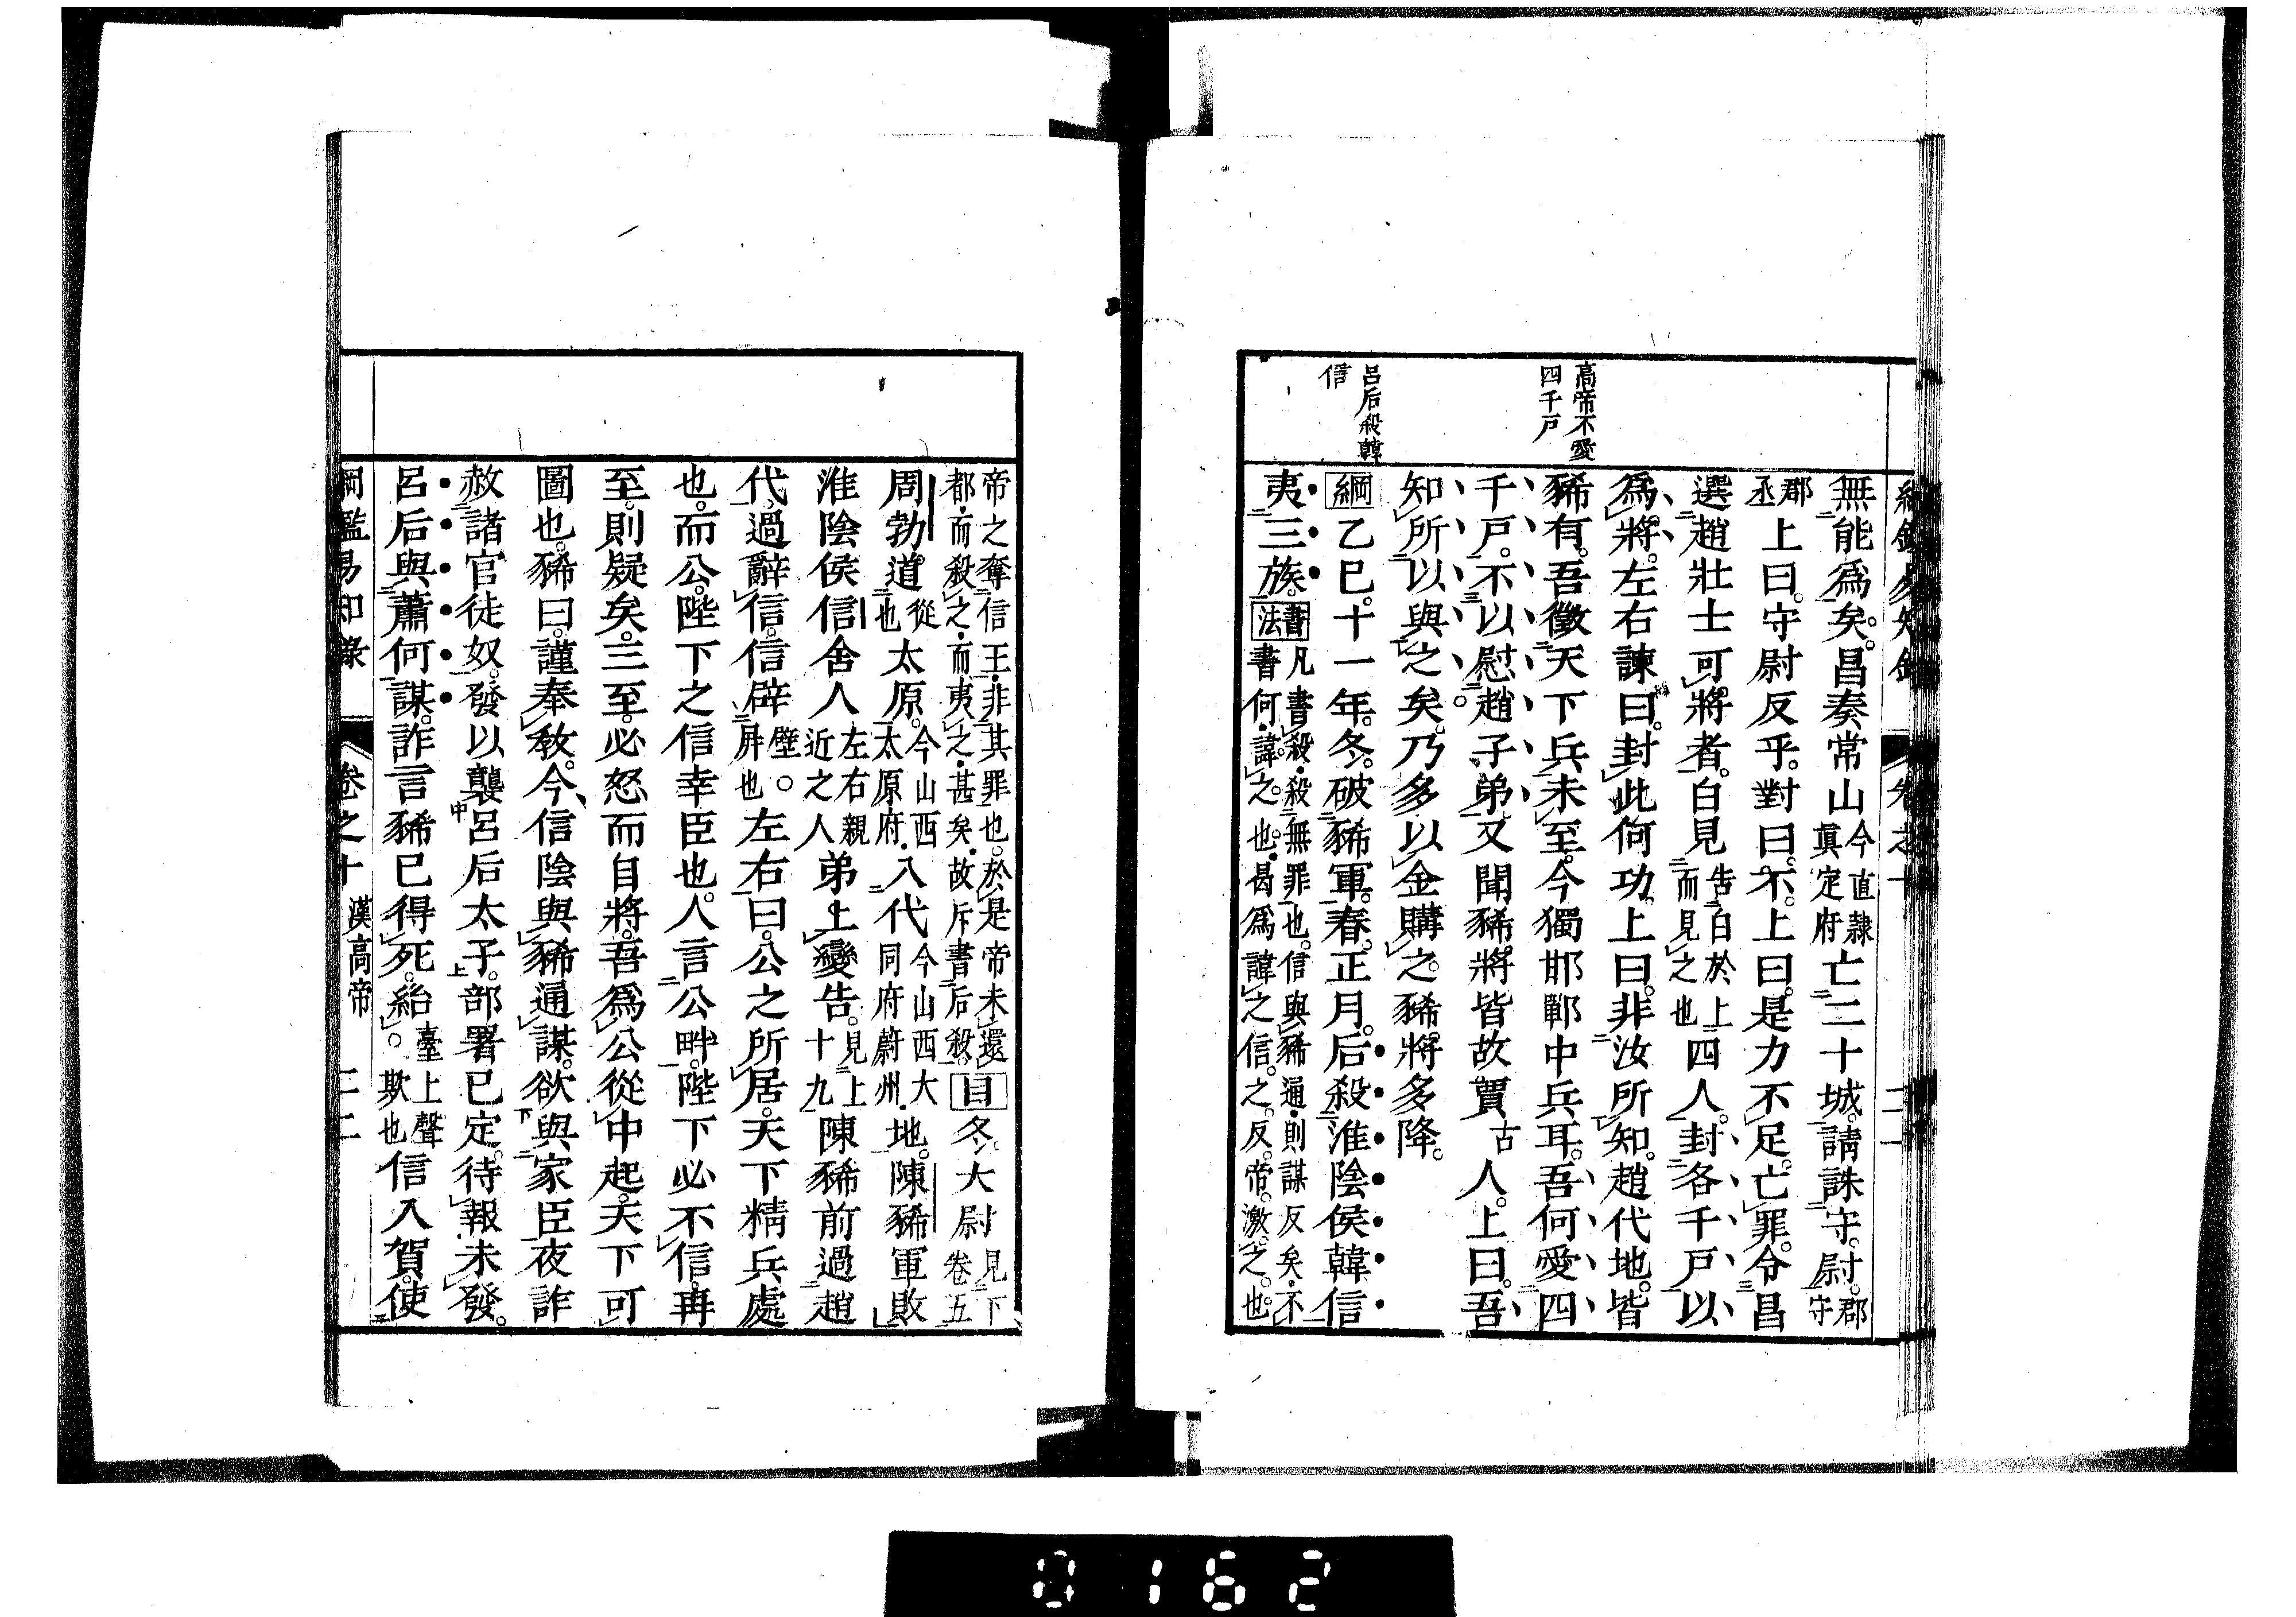 綱鑑易知錄 卷之十 二一
高帝不愛
四千戸
呂后殺韓
信
無能爲矣。昌奏常山今直隷眞定府亡二十城。請誅守。尉。郡守
郡丞上曰。守尉反乎。對曰。不。上曰。是力不足。亡罪。令昌
選趙壯士可將者。白見告白於上而見之也四人。封各千戸以
爲將。左右諫曰。封此何功。上曰。非汝所知。趙代地。皆
豨有。吾徵天下兵未至。今獨邯鄲中兵耳。吾何愛四
千戸。不以慰趙子弟。又聞豨將皆故賈古人。上曰。吾
知所以與之矣。乃多以金購之。豨將多降。
綱乙巳。十一年。冬。破豨軍。春。正月。后殺淮陰侯韓信
夷三族。書法凡書殺殺無罪也。信與豨通則謀反矣不書何諱之也曷爲諱之信之反帝激之也
帝之奪信王非其罪也。於是帝未還都而殺之而夷之甚矣故斥書后殺。目冬。大尉見下卷五
周勃。道從也太原。今山西太原府入代今山西大同府蔚州地。陳豨軍敗
淮陰侯信舍人左右親近之人弟上變告。見上十九陳豨前過趙
代。過辭信。信辟壁。屛也左右曰。公之所居。天下精兵處
也。而公。陛下之信幸臣也。人言公畔。陛下必不信。再
至。則疑矣。三至。必怒而自將。吾爲公從中起。天下可
圖也。豨曰。謹奉敎。今信陰與豨通謀。欲與家臣夜詐
赦諸官徒奴。發以襲呂后太子。部署已定。待報未發。
呂后與蕭何謀。詐言豨已得死。紿。臺上聲欺也信入賀。使
綱鑑易知錄 卷之十 漢高帝 二二
0162